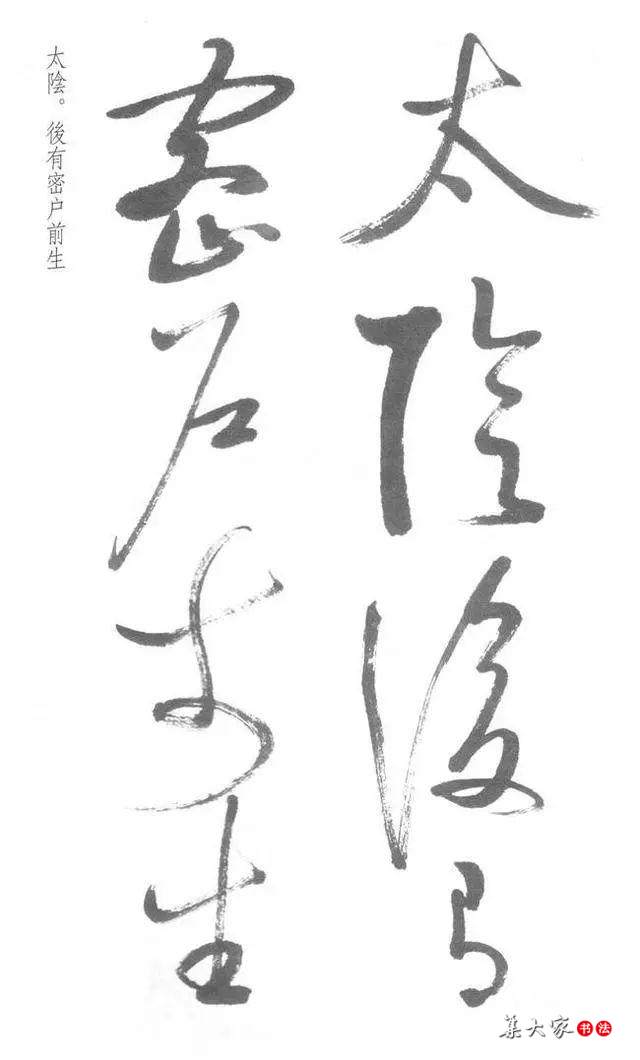 太陰後有
密户前生
太陰。後有密户前生
集大家书法